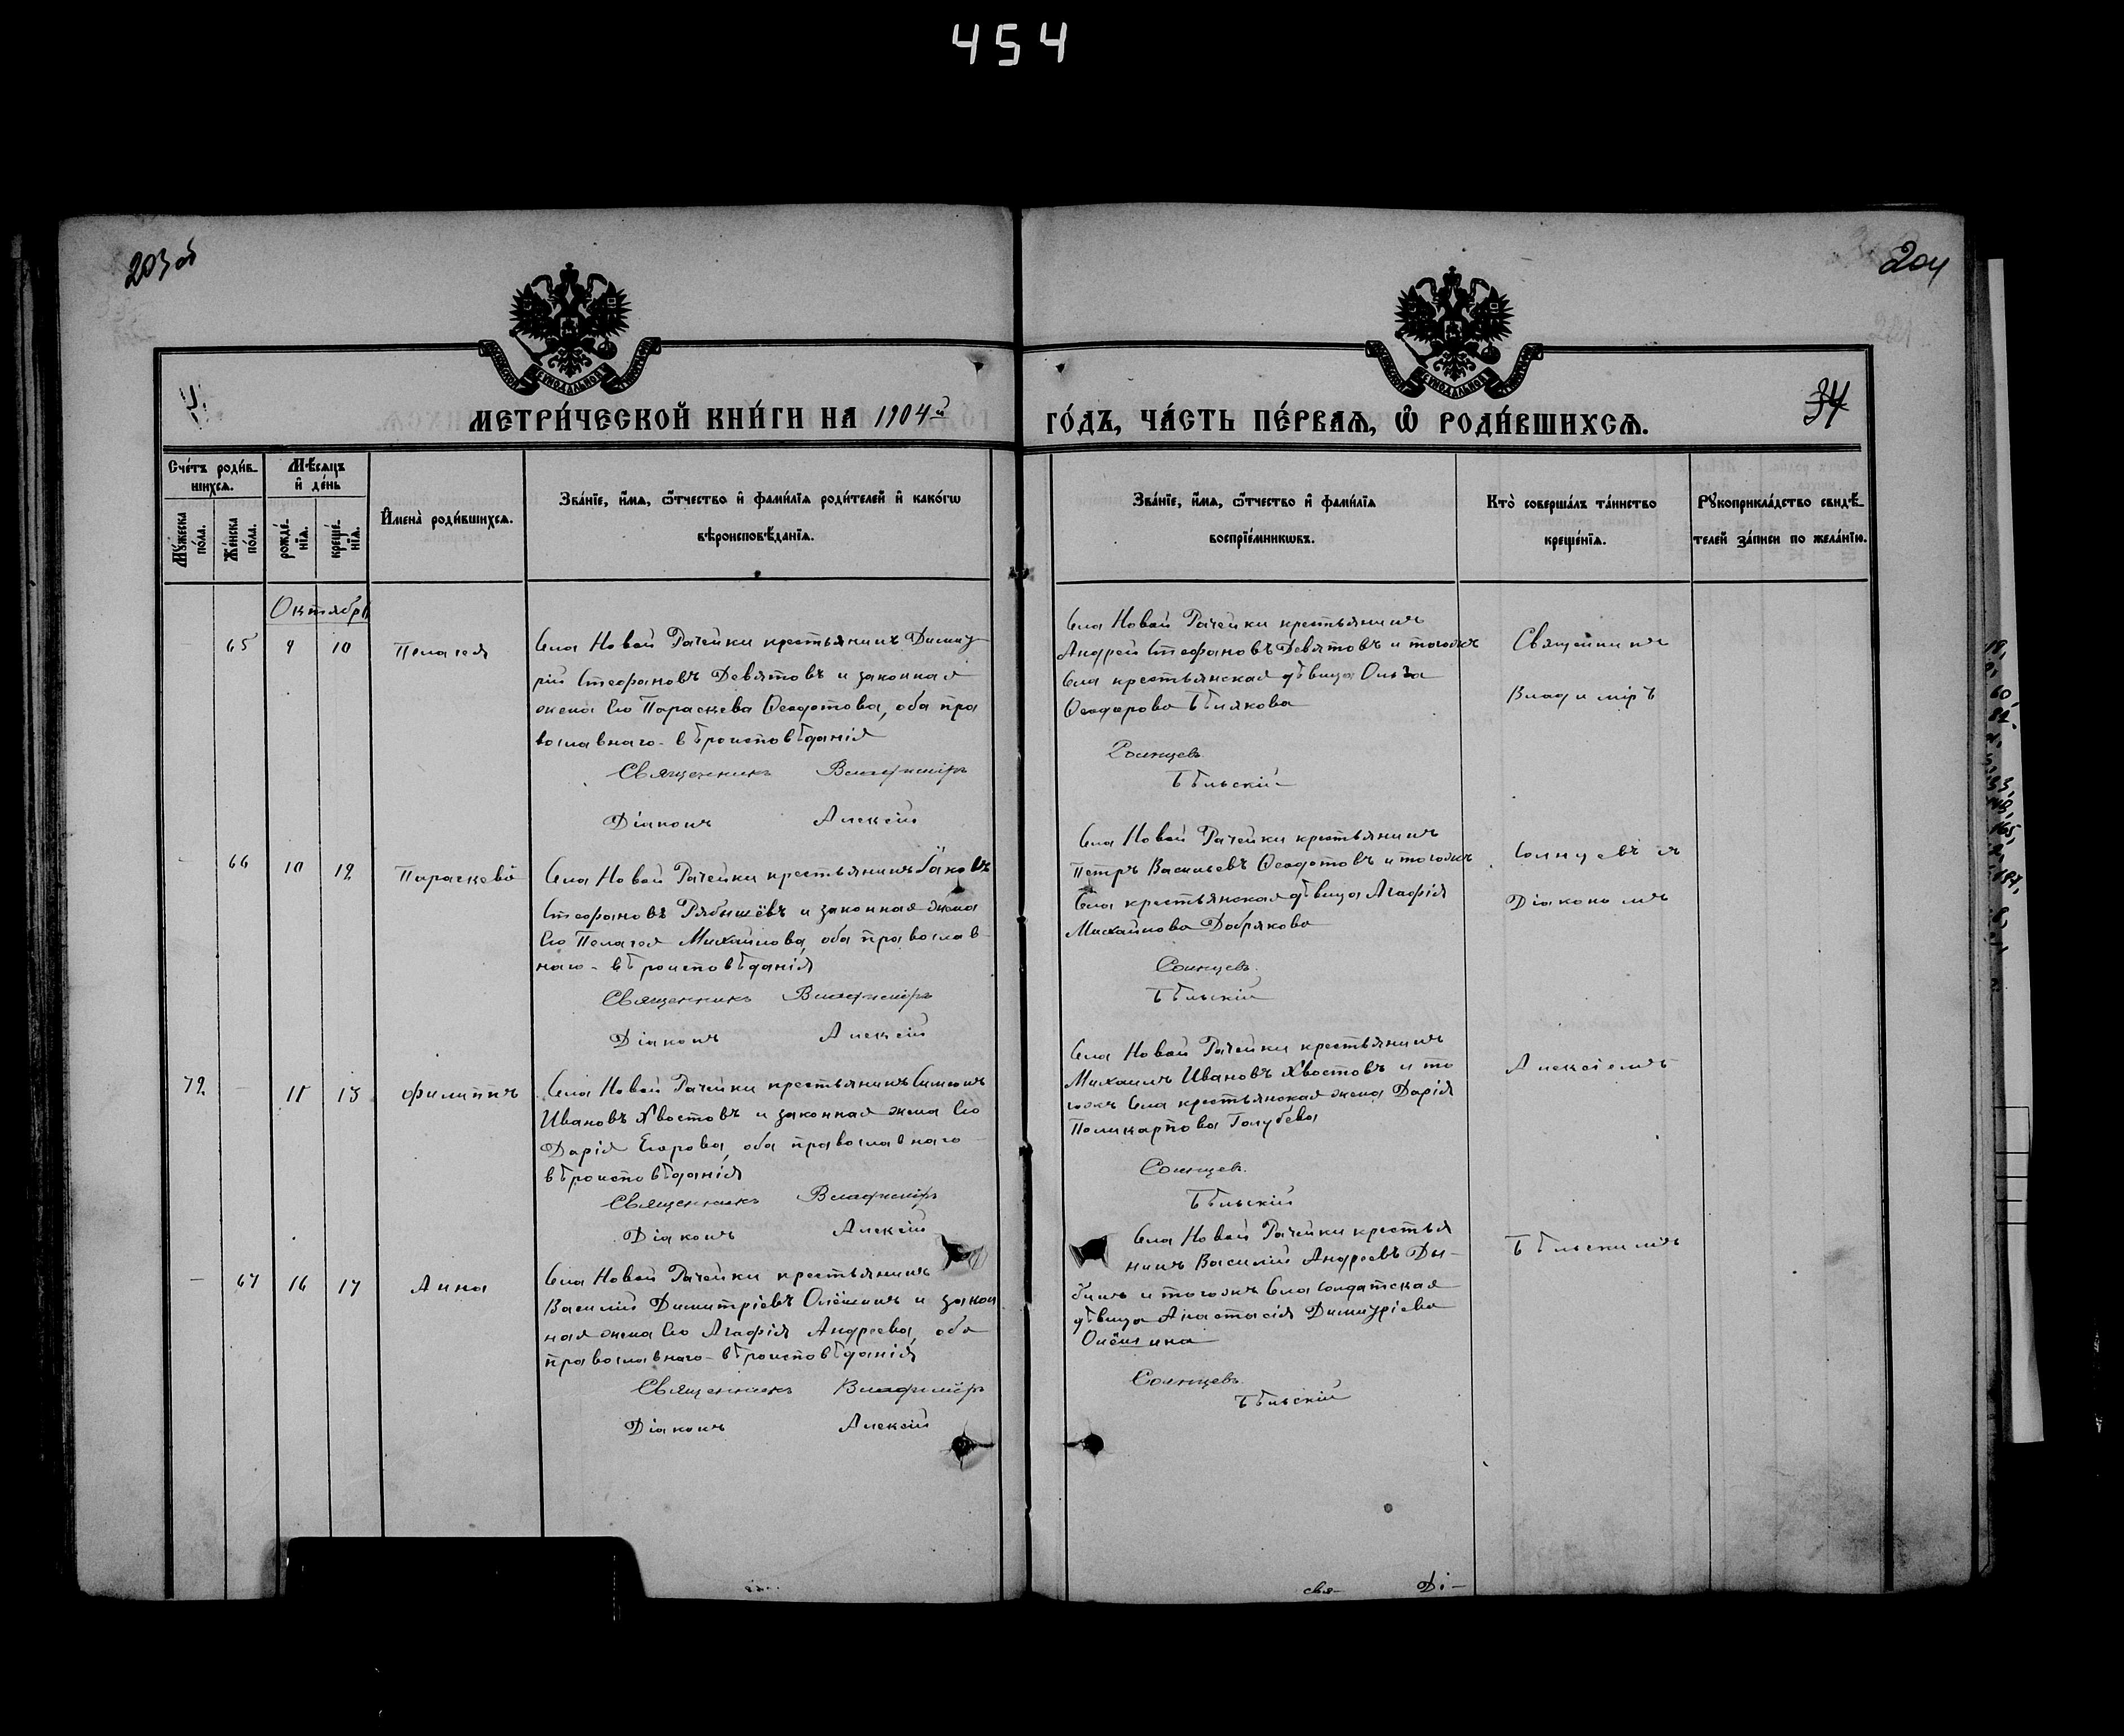 454
203об
204
34
МЕТРИ́ЧЕСКОЙ КНИ́ГИ НА 1904й ГО́ДЪ, ЧА́СТЬ ПЕ́РВАѦ, Ѡ҆ РОДИ́ВШИХСѦ.
Сче́тъ роди́в-
шихсѧ.
Мѣ́сѧцъ
и҆ де́нь
Мꙋ́жеска
по́ла.
Же́нска
по́ла.
рожде́-
нїѧ.
креще́-
нїѧ.
И҆мена̀ роди́вшихсѧ.
Зва́нїе, и҆́мѧ, ѻ҆́тчество и҆ фами́лїѧ роди́телей и҆ како́гѡ
вѣроисповѣ́данїѧ.
Зва́нїе, и҆́мѧ, ѻ҆́тчество и҆ фами́лїѧ
воспрїе́мникѡвъ.
Кто̀ соверша́лъ та́инство
креще́нїѧ.
Рꙋкоприкла́дство свидѣ́-
телей за́писи по жела́нїю.
Октября
65 9 10 Пелагея
Села Новой Рачейки крестьянинъ Димит
рій Стефановъ Девятовъ и законная
жена Его Параскева Ѳеодотова, оба пра
вославнаго вѣроисповѣданія
Священникъ Владиміръ
Діаконъ Алексій
Села Новой Рачейки крестьянинъ
Андрей Стефановъ Девятовъ и тогожъ
Села крестьянская дѣвица Ольга
Ѳеодорова Бѣлякова
Солнцевъ
Бѣльскій
Священникъ
Владиміръ
66 10 12 Параскева
Села Новой Рачейки крестьянинъ Іаковъ
Стефановъ Рябышёвъ и законная жена
Его Пелагея Михайлова, оба православ
наго вѣроисповѣданія
Священникъ Владиміръ
Діаконъ Алексій
Села Новой Рачейки крестьянинъ
Петръ Васильевъ Ѳеодотовъ и тогожъ
Села крестьянская дѣвица Агафія
Михайлова Добрякова
Солнцевъ
Бѣльскій
Солнцевъ и
Діакономъ
72 – 11 13 Филиппъ
Села Новой Рачейки крестьянинъ Симеонъ
Ивановъ Хвостовъ и законная жена Его
Дарія Егорова, оба православнаго
вѣроисповѣданія
Священникъ Владиміръ
Діаконъ Алексій
Села Новой Рачейки крестьянинъ
Михаилъ Ивановъ Хвостовъ и то
гожъ Села крестьянская жена Дарія
Поликарпова Голубева
Солнцевъ
Бѣльскій
Алексіемъ
– 67 16 17 Анна
Села Новой Рачейки крестьянинъ
Василій Димитріевъ Олёшинъ и закон
ная жена Его Агафія Андреева, оба
православнаго вѣроисповѣданія
Священникъ Владиміръ
Діаконъ Алексій
Села Новой Рачейки крестья
нинъ Василій Андреевъ Ды-
бинъ и тогожъ Села солдатская
дѣвица Анастасія Димитріева
Олёшина
Солнцевъ
Бѣльскій
Бѣльскимъ
свя- Ді-